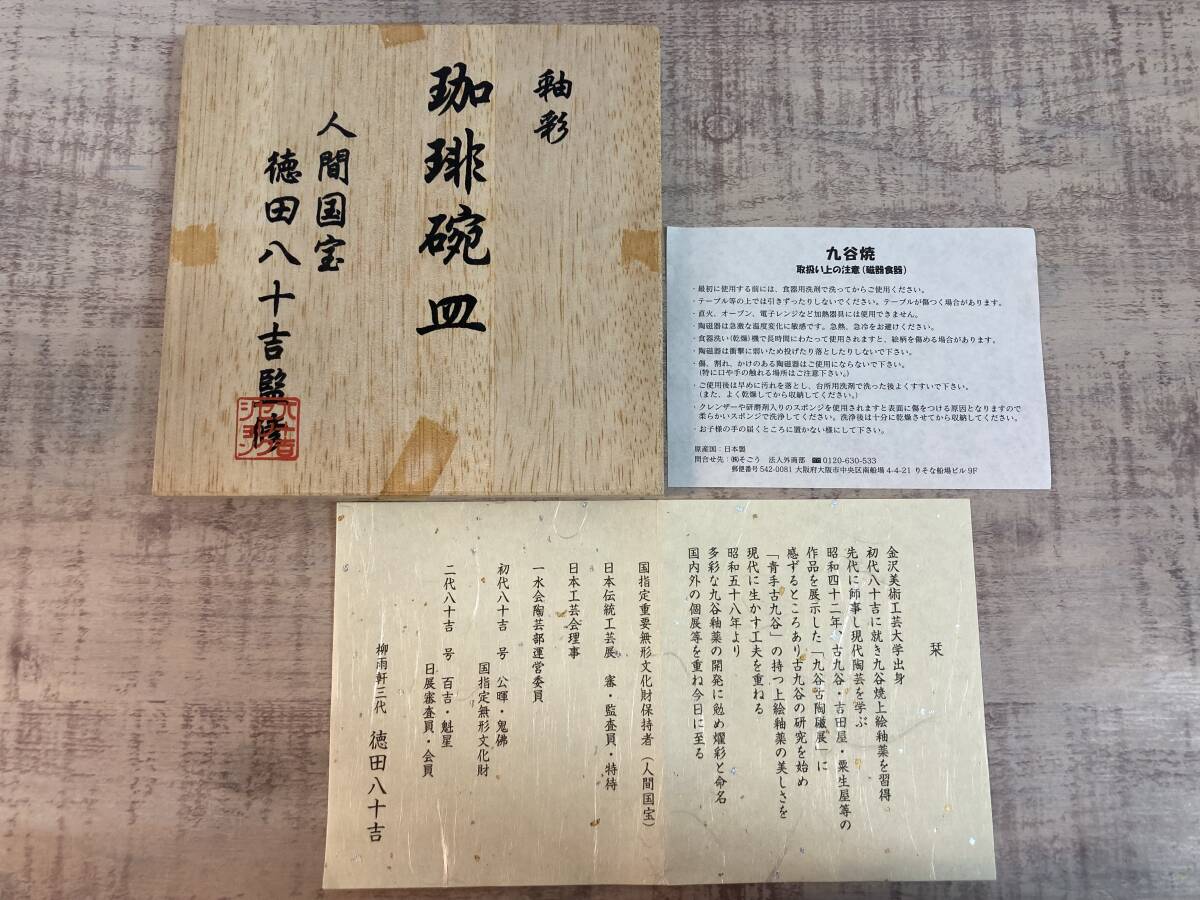 釉彩
珈琲碗皿
人間国宝
徳田八十吉監修
九谷焼
取扱い上の注意(磁器食器)
・最初に使用する前には、食器用洗剤で洗ってからご使用ください。
・テーブル等の上では引きずったりしないでください。テーブルが傷つく場合があります。
・直火、オーブン、電子レンジなど加熱器具には使用できません。
・陶磁器は急激な温度変化に敏感です。急熱、急冷をお避けください。
・食器洗い(乾燥)機で長時間にわたって使用されますと、絵柄を傷める場合があります。
・陶磁器は衝撃に弱いため投げたり落としたりしないで下さい。
・傷、割れ、かけのある陶磁器はご使用にならないで下さい。
(特に口や手の触れる場所はご注意下さい。)
・ご使用後は早めに汚れを落とし、台所用洗剤で洗った後よくすすいで下さい。
(また、よく乾燥してから収納してください。)
・クレンザーや研磨剤入りのスポンジを使用されますと表面に傷をつける原因となりますので
柔らかいスポンジで洗浄してください。洗浄後は十分に乾燥させてから収納してください。
・お子様の手の届くところに置かない様にして下さい。
原産国:日本製
問合せ先:㈱そごう 法人外商部 0120-630-533
郵便番号 542-0081 大阪府大阪市中央区南船場 4-4-21 りそな船場ビル 9F
栞
金沢美術工芸大学出身
初代八十吉に就き九谷焼上絵釉薬を習得
先代に師事し現代陶芸を学ぶ
昭和四十二年、古九谷・吉田屋・粟生屋等の
作品を展示した「九谷古陶磁展」に
感ずるところあり古九谷の研究を始め
「青手古九谷」の持つ上絵釉薬の美しさを
現代に生かす工夫を重ねる
昭和五十八年より
多彩な九谷釉薬の開発に勉め燿彩と命名
国内外の個展等を重ね今日に至る
国指定重要無形文化財保持者(人間国宝)
日本伝統工芸展 審・監査員・特待
日本工芸会理事
一水会陶芸部運営委員
初代八十吉 号 公暉・鬼佛
国指定無形文化財
二代八十吉 号 百吉・魁星
日展審査員・会員
柳雨軒三代 徳田八十吉